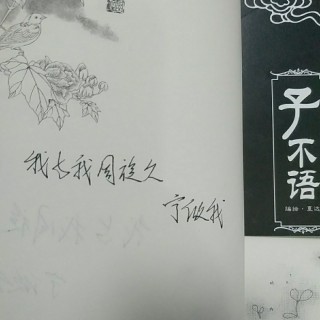 我与我周旋久
宁做我
子不语
编绘·夏达